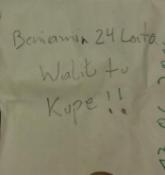 Beniamin 24 Lata
Walił tu
Kupe!!